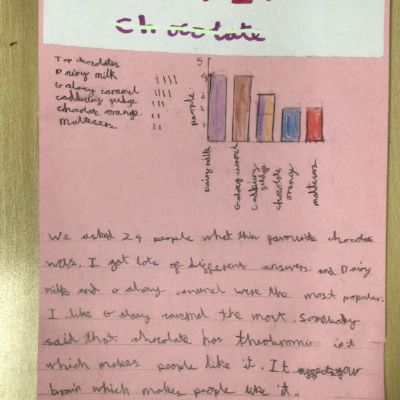 Chocolate
Top chocolates
Dairy milk
Galaxy caramel
cadbury fudge
chocolate orange
maltesers
5
people
Dairy milk
Galaxy caramel
Cadbury fudge
chocolate orange
maltesers
We asked 24 people what thier favourite chocolate
was. I got lots of different answers and Dairy
milk and Galaxy caramel were the most popular.
I like Galaxy caramel the most. Somebody
said that chocolate has theobromin in it
which makes people like it. It your
brain which makes people like it.